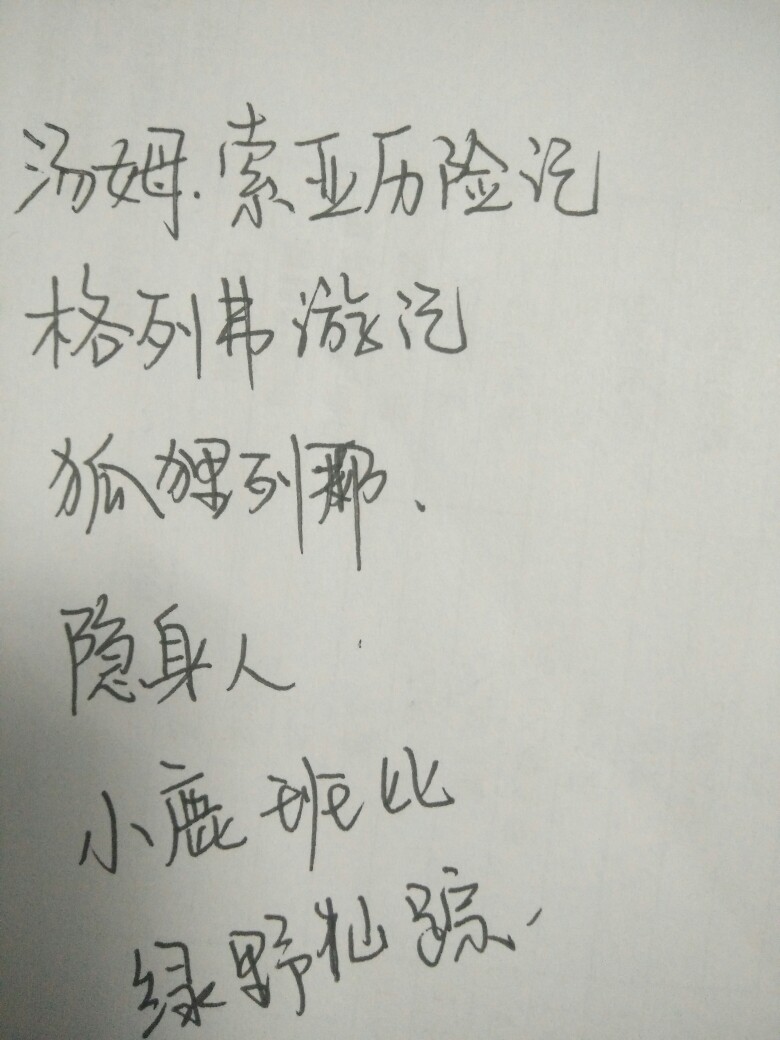 汤姆.索亚历险记
格列弗游记
狐狸列那、
隐身人
小鹿班比
绿野仙踪、